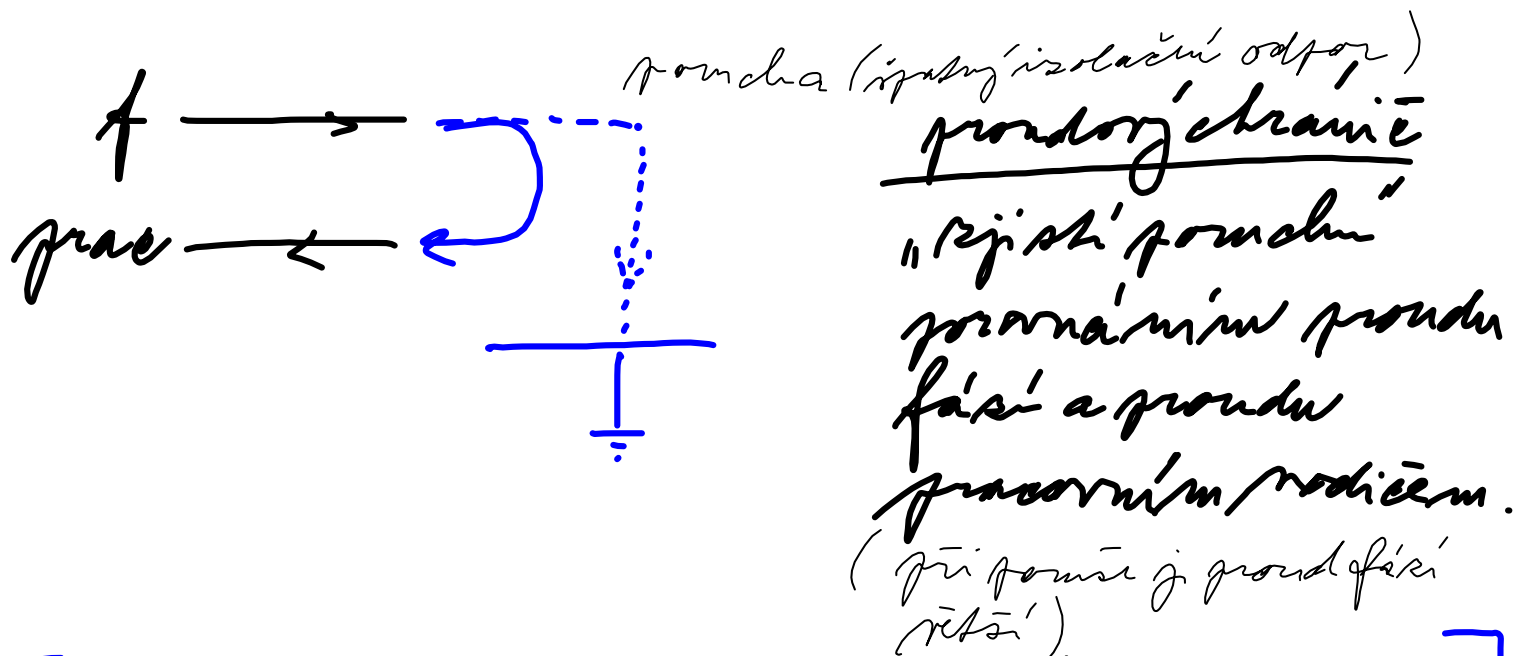 porucha (špatný izolační odpor)
f
proudový chránič
prac
„zjistí poruchu“
porovnáním proudu
fází a proudu
pracovním vodičem.
(při poruše j proud fází
větší)